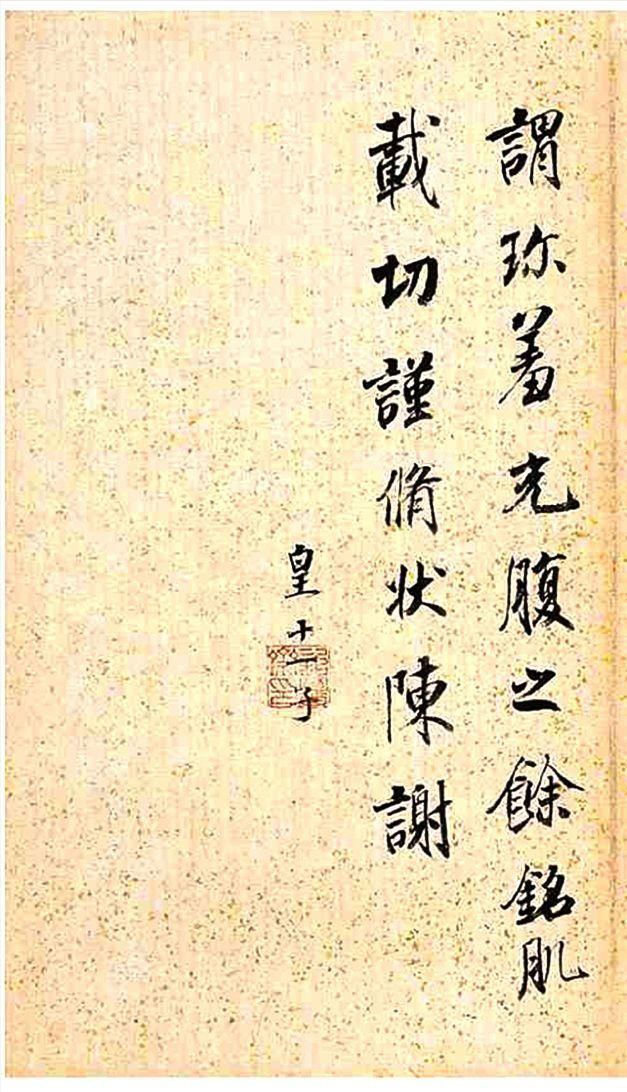 謂珎羞充腹之餘銘肌
載切謹脩状陳謝
皇十一子